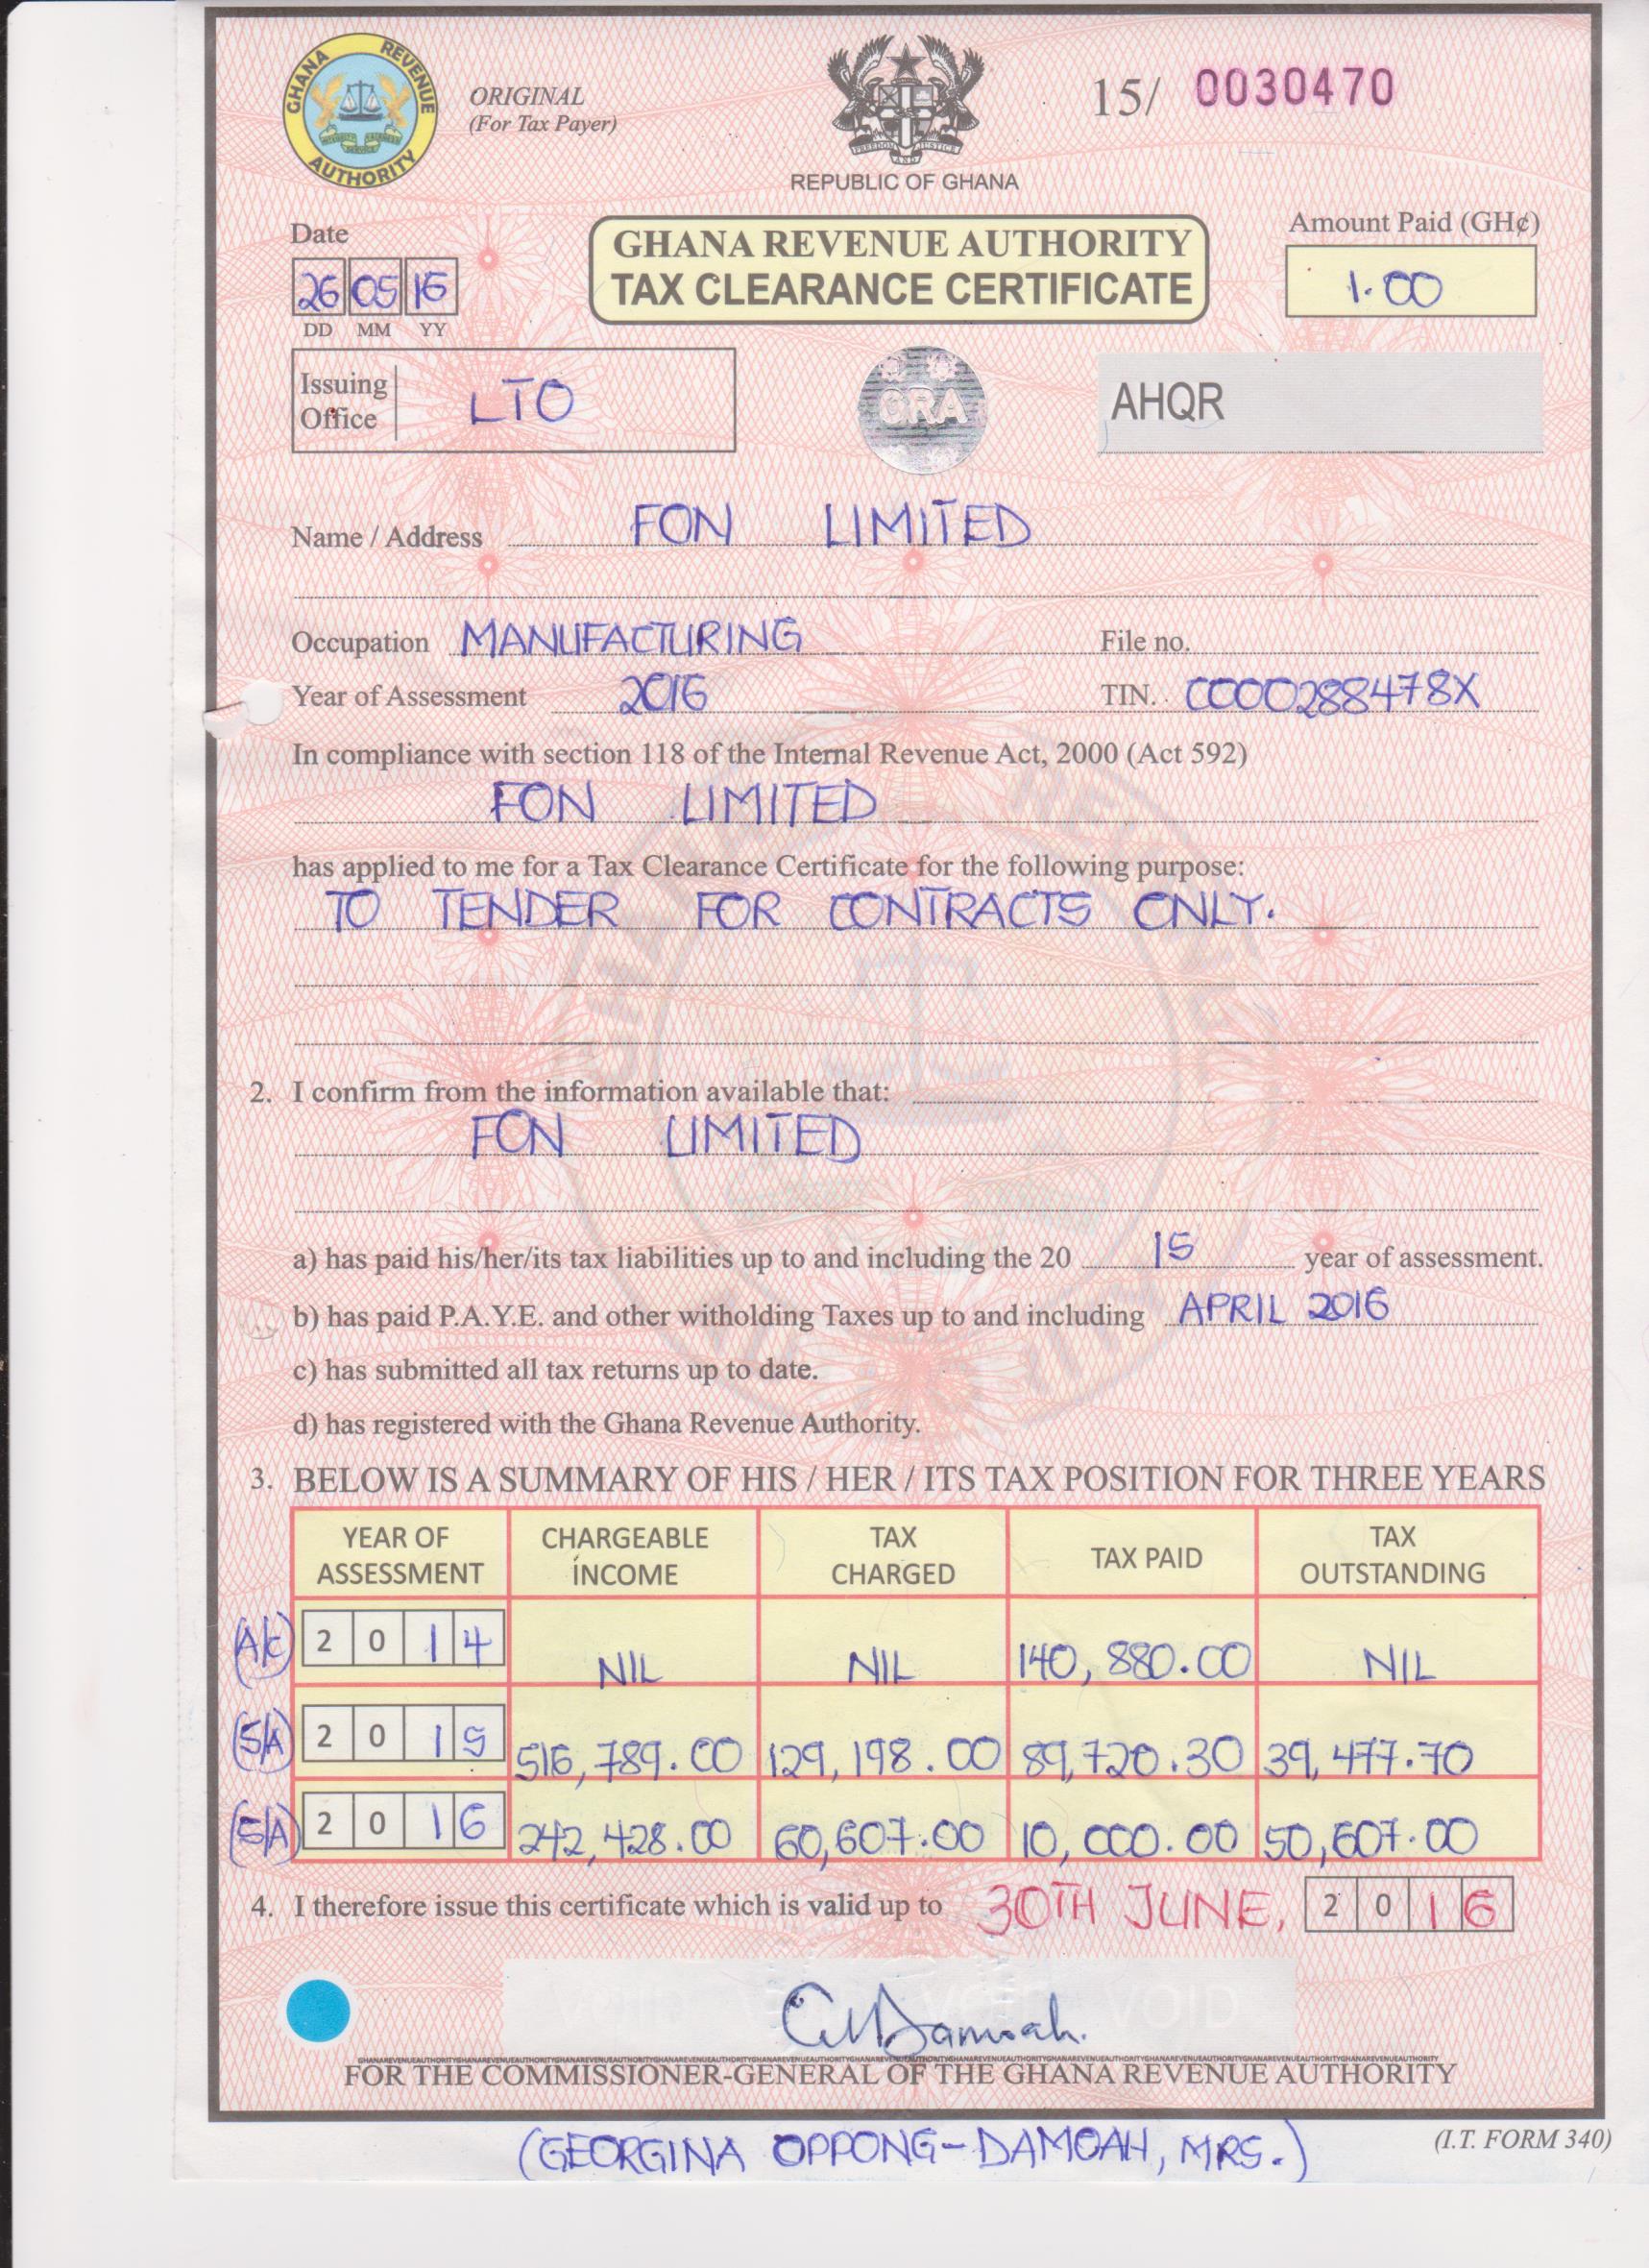 GHANA REVENUE AUTHORITY
ORIGINAL
(For Tax Payer)
REPUBLIC OF GHANA
15/ 0030470
Date
26 05 16
DD MM YY
GHANA REVENUE AUTHORITY
TAX CLEARANCE CERTIFICATE
Amount Paid (GH¢)
1.00
Issuing Office LTO
GRA
AHQR
Name / Address FON LIMITED
Occupation MANUFACTURING File no.
Year of Assessment 2016 TIN. C000288478X
In compliance with section 118 of the Internal Revenue Act, 2000 (Act 592)
FON LIMITED
has applied to me for a Tax Clearance Certificate for the following purpose:
TO TENDER FOR CONTRACTS ONLY.
2. I confirm from the information available that:
FON LIMITED
a) has paid his/her/its tax liabilities up to and including the 20 15 year of assessment.
b) has paid P.A.Y.E. and other witholding Taxes up to and including APRIL 2016
c) has submitted all tax returns up to date.
d) has registered with the Ghana Revenue Authority.
3. BELOW IS A SUMMARY OF HIS / HER / ITS TAX POSITION FOR THREE YEARS
YEAR OF ASSESSMENT CHARGEABLE INCOME TAX CHARGED TAX PAID TAX OUTSTANDING
(A/C) 2014 NIL NIL 140,880.00 NIL
(S/A) 2015 516,789.00 129,198.00 89,720.30 39,477.70
(S/A) 2016 242,428.00 60,607.00 10,000.00 50,607.00
4. I therefore issue this certificate which is valid up to 30TH JUNE, 2016
VOID
FOR THE COMMISSIONER-GENERAL OF THE GHANA REVENUE AUTHORITY
(GEORGINA OPPONG-DAMOAH, MRS.)
(I.T. FORM 340)